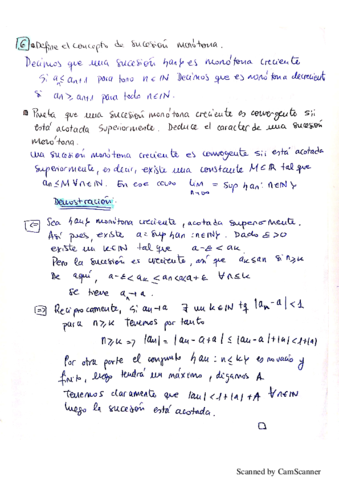 6 • Define el concepto de sucesión monótona.
Decimos que una sucesión {an} es monótona creciente
si an ≤ an+1 para todo n∈ℕ. Decimos que es monótona decreciente
si an ≥ an+1 para todo n∈ℕ.
• Prueba que una sucesión monótona creciente es convergente sii
está acotada superiormente. Deduce el caracter de una sucesión
monótona.
Una sucesión monótona creciente es convergente sii está acotada
superiormente, es decir, existe una constante M∈ℝ tal que
an ≤ M ∀n∈ℕ. En ese caso lim n→∞ = sup {an: n∈ℕ}
Demostración:
⇐) Sea {an} monótona creciente, acotada superiormente.
Así pues, existe a = sup {an: n∈ℕ}. Dado ε>0
existe un k∈ℕ tal que a-ε < ak.
Pero la sucesión es creciente, así que ak ≤ an si n≥k
De aquí, a-ε < ak ≤ an ≤ a < a+ε ∀n≥k
Se tiene an→a.
⇒) Recíprocamente, si an→a ∃ un k∈ℕ t.q. |an-a|<1
para n≥k. Tenemos por tanto
n≥k ⇒ |an| = |an-a+a| ≤ |an-a|+|a| < 1+|a|
Por otra parte el conjunto {an: n≤k} es no vacío y
finito, luego tendrá un máximo, digamos A.
Tenemos claramente que |an| < 1+|a|+A ∀n∈ℕ
luego la sucesión está acotada.
□
Scanned by CamScanner